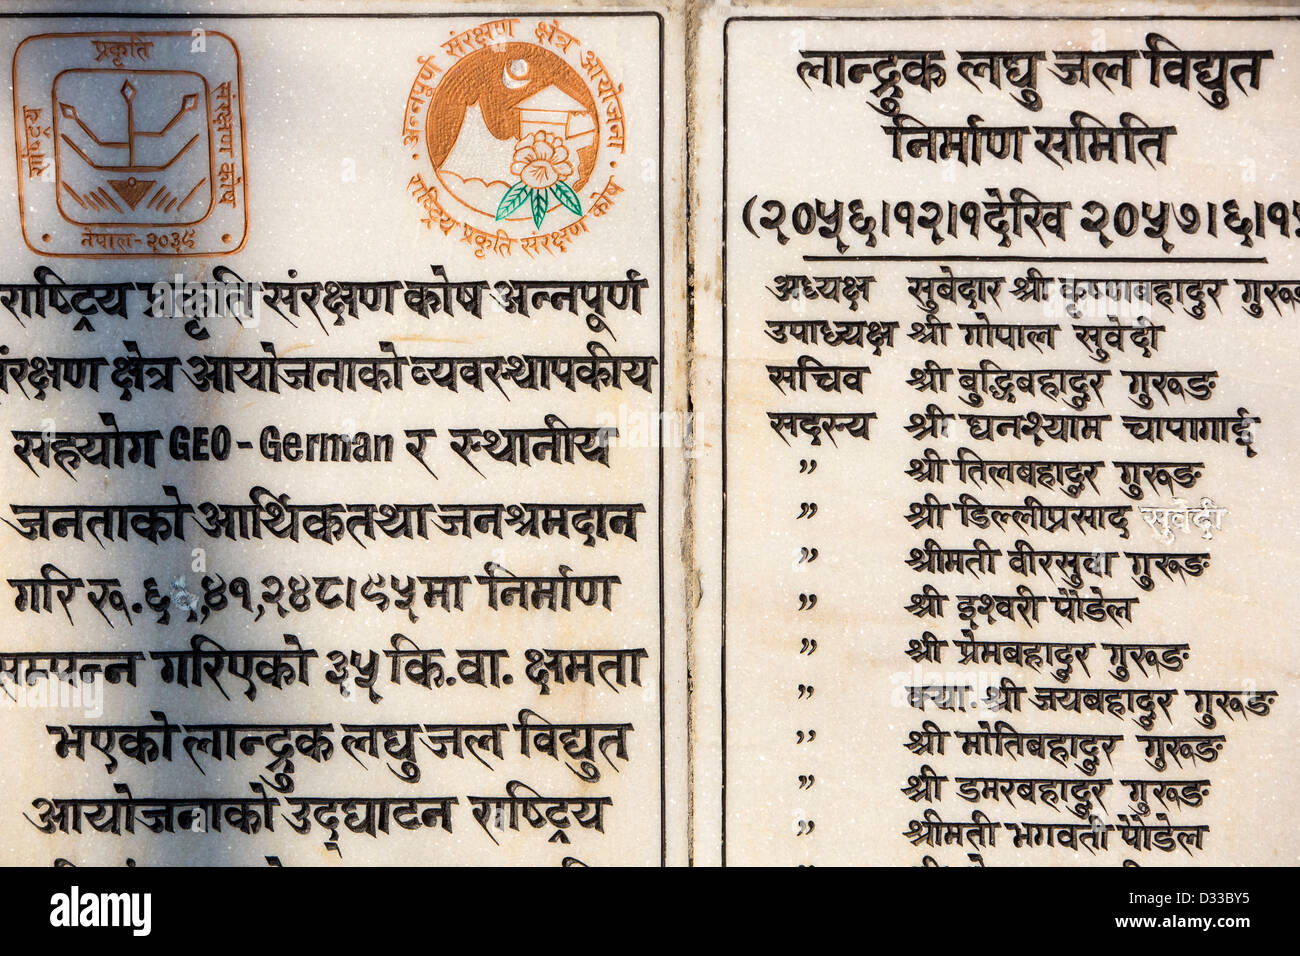 प्रकृति
संरक्षण कोष
राष्ट्रिय
नेपाल-२०३९
अन्नपूर्ण संरक्षण क्षेत्र आयोजना
राष्ट्रिय प्रकृति संरक्षण कोष
राष्ट्रिय प्रकृति संरक्षण कोष अन्नपूर्ण
संरक्षण क्षेत्र आयोजनाको व्यवस्थापकीय
सहयोग GEO-German र स्थानीय
जनताको आर्थिक तथा जनश्रमदान
गरि रु. मा निर्माण
सम्पन्न गरिएको ३५ कि.वा. क्षमता
भएको लान्द्रुक लघु जल विद्युत
आयोजनाको उद्घाटन राष्ट्रिय
लान्द्रुक लघु जल विद्युत
निर्माण समिति
(२०५६।१२।१देखि २०५७।६।१५
अध्यक्ष सुवेदार श्री कृष्णबहादुर गुरूङ
उपाध्यक्ष श्री गोपाल सुवेदी
सचिव श्री बुद्धिबहादुर गुरूङ
सदस्य श्री घनश्याम चापागाई
" श्री तिलबहादुर गुरूङ
" श्री डिल्लीप्रसाद सुवेदी
" श्रीमती वीरसुवा गुरूङ
" श्री इश्वरी पौडेल
" श्री प्रेमबहादुर गुरूङ
" क्या. श्री जयबहादुर गुरूङ
" श्री मोतिबहादुर गुरूङ
" श्री डमरबहादुर गुरूङ
" श्रीमती भगवती पौडेल
alamy
Image ID: D33BY5
www.alamy.com